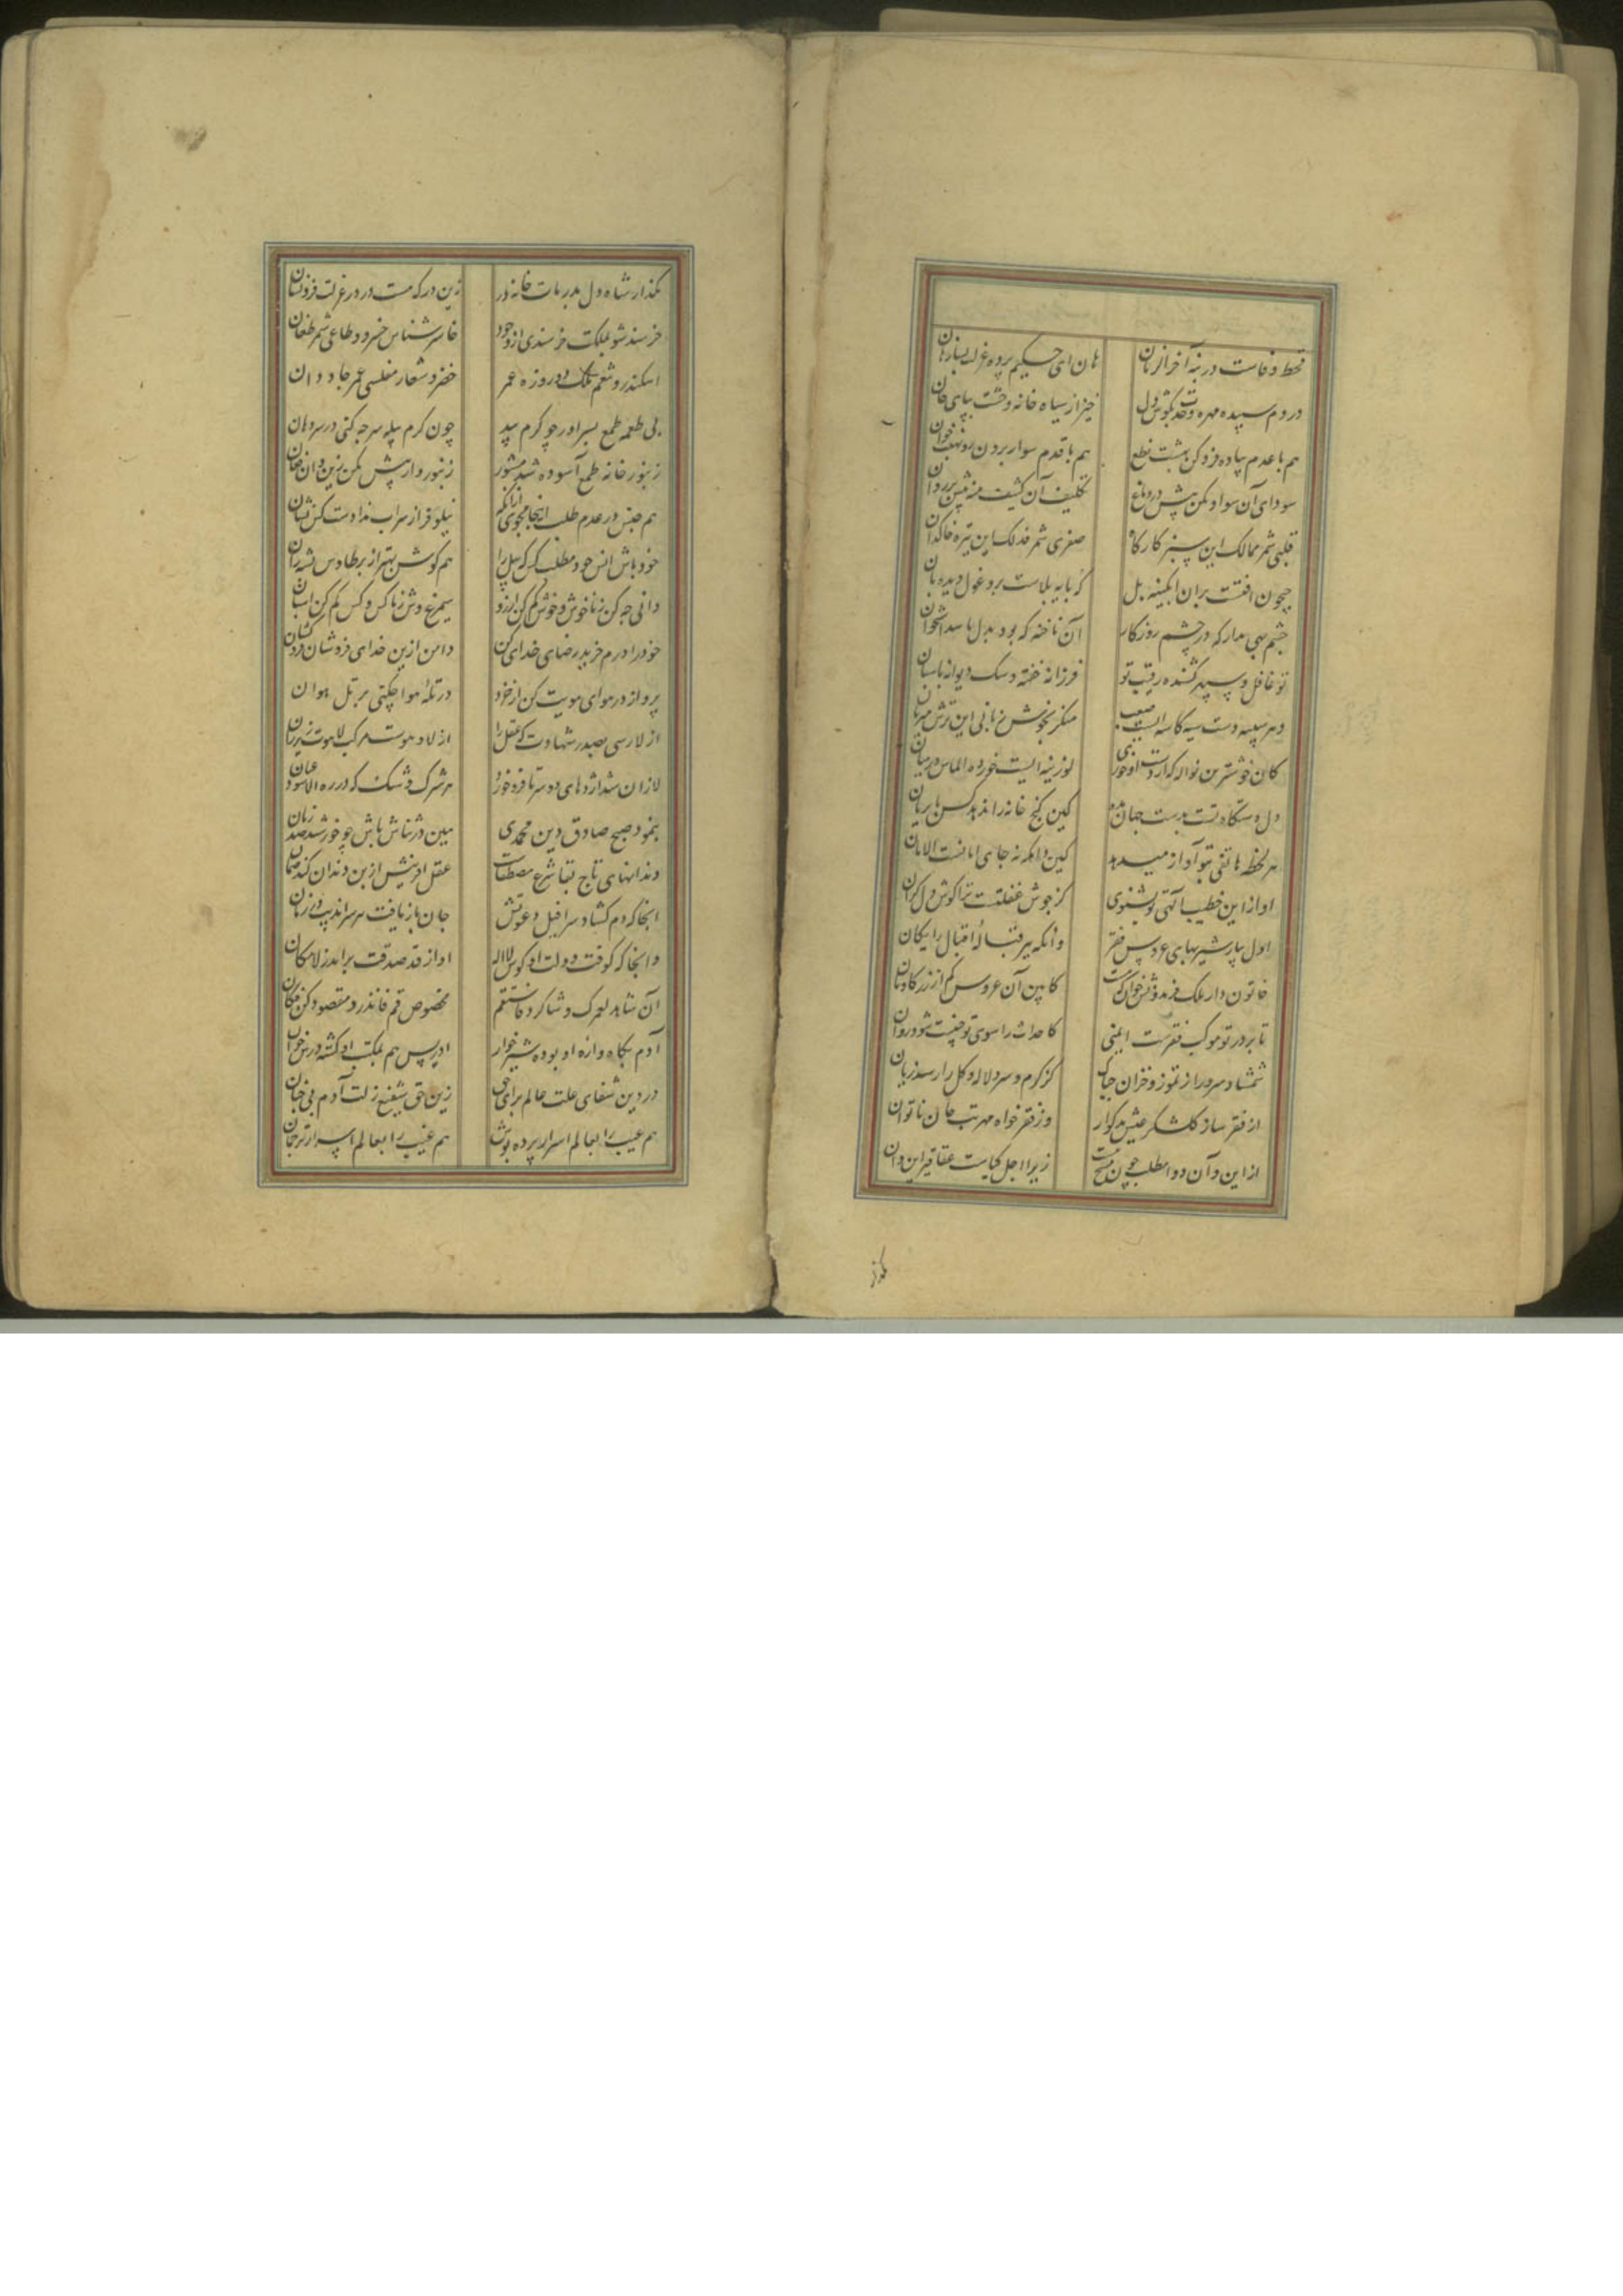 قحط وفاست در بنه آخر الزمان هان ای حکیم پرده عزلت بساز هان
در دم سپیده مهره وحدت بگوش دل خیز از سیاه خانه وحشت بپای جان
هم با عدم پیاده فرو کن بهشت نطع هم با قدم سوار برون رو بهفت خوان
سودای آن سواد مکن پیش در دماغ تکلیف آن کشیف منه پیش بر روان
قلبی شمر ممالک این سبز کارگاه صفری شمر فذلک این تیره خاکدان
جیحون افتست بران ابکینه پل که پایه بلاست برو غول دیده بان
چشم بهی مدار که در چشم روزکار آن ناخنه که بود بدل شد باستخوان
تو غافل و سپهر کشنده رقیب تو فرزانه خفته و سک دیوانه پاسبان
دهر سپید دست سیه کاسه ایست صعب منکر بخوش زبانی این ترش میزبان
کان خوشترین نواله که از دست او خوری لوزینه ایست خورده الماس در میان
دل دستکاه تست بدست جهان مده کین کنج خانه را ندهد کس برایکان
هر لحظه هاتفی بتو آواز میدهد کین دامکه نه جای امانست الامان
اواز این خطیب الهی تو نشنوی کز جوش غفلتست ترا کوش دل کران
اول بیار شیربهای عروس فقر وانکه ببر قباله اقبال رایکان
خاتون دار ملک فریدونش خوان که نیست کابین آن عروس کم از زر کاویان
تا بر در تو موکب فقرست ایمنی کاحداث را سوی تو جنیبت شود روان
شمشاد و سرو را ز تموز و خزان چه باک کز کرم و سرد لاله و کل را رسد زیان
از فقر ساز کلشکر عیش بدکوار وز فقر خواه مهر تب جان ناتوان
از این و آن دوا مطلب چون مسیح هست زیرا اجل کیاست عقاقیر این و آن
بکذار
بکذار شاه دل بدر مات خانه در زین در که هست در در عزلت فرو نشان
خرسند شو بملکت خرسندی از وجود خاسر شناس خسرو و طاغی شمر طغان
اسکندر و تنعم ملک دو روزه عمر خضر و شعار مفلسی عمر جاودان
بی طعمه طمع بسر اور چو کرم بید چون کرم پیله سر چه کنی در سر دهان
زنبور خانه طمع آسوده شد مشور زنبور وار پیش مکن زین و آن فغان
هم جنس در عدم طلب اینجا مجوی ازانکه نیلوفر از سراب ندادست کس نشان
خود باش انس خود مطلب کس که پیل را هم کوش بهتر از پر طاوس پشه ران
دانی چه کن ز ناخوش و خوش کم کن آرزو سیمرغ وش ز ناکس و کس کم کن اشیان
خود را درم خرید رضای خدای کن دامن ازین خدای فروشان فرو کشان
پرواز در هوای هویت کن از خرد در تله هوا چکنی بر تل هوان
از لا رسی بصدر شهادت که عقل را از لا و هوست مرکب لاهوت زیر ران
لا زان شد اژدهای دو سر تا فرو خورد هر شرک و شک که در ره الا شود عیان
بنمود صبح صادق دین محمدی هین در ثناش باش چو خورشید صد زبان
دندانهای تاج بقا شرع مصطفاست عقل افرینش از بن دندان کند ضمان
انجا که دم کشاد سرافیل دعوتش جان بازیافت پیر سراندیب در زمان
وانجا که کوفت دولت او کوس لا اله اواز قد صدقت برامد ز لامکان
آن شاهد لعمرک و شاکرد فاستقم مخصوص قم فانذر و مقصود کن فکان
آدم بکاهواره او بوده شیرخوار ادریس هم بمکتب او کشته درس خوان
در دین شفای علت عالم برای حق زین حق شفیع زلت آدم بی جنان
هم عیب را بعالم اسرار پرده پوش هم غیب را بعالم اسرار ترجمان